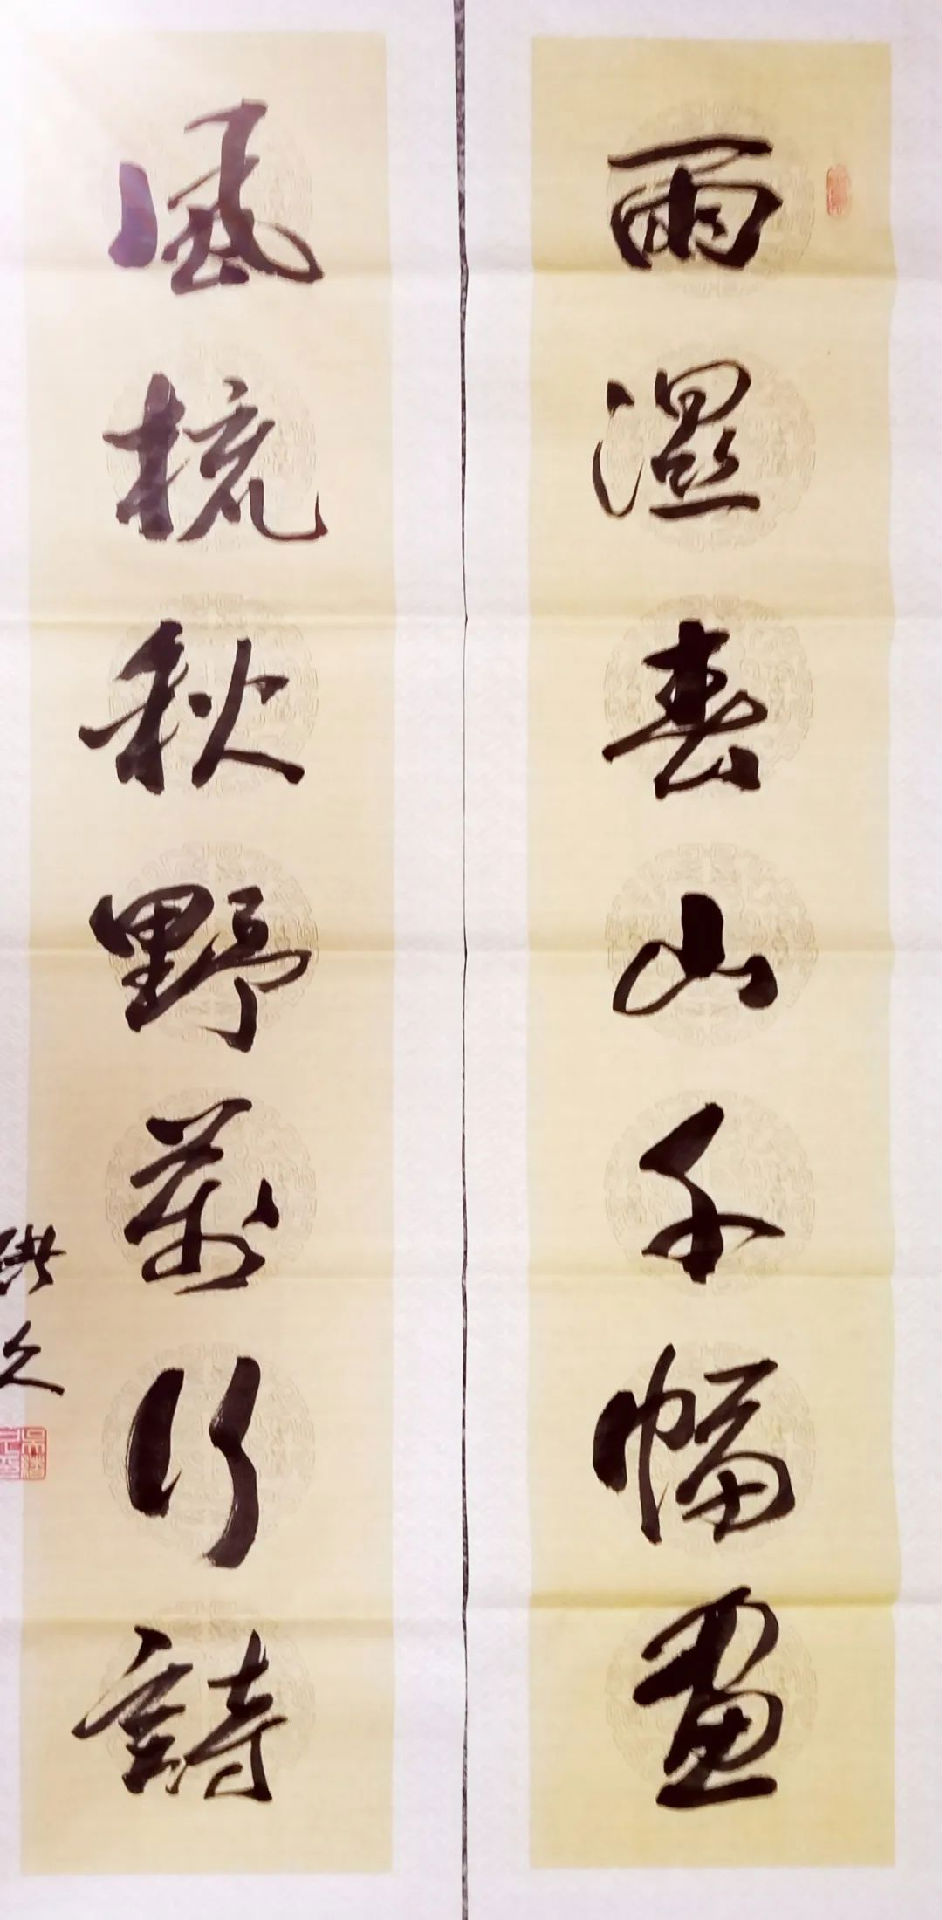 雨濕春山千幅畫
風梳秋野萬行詩